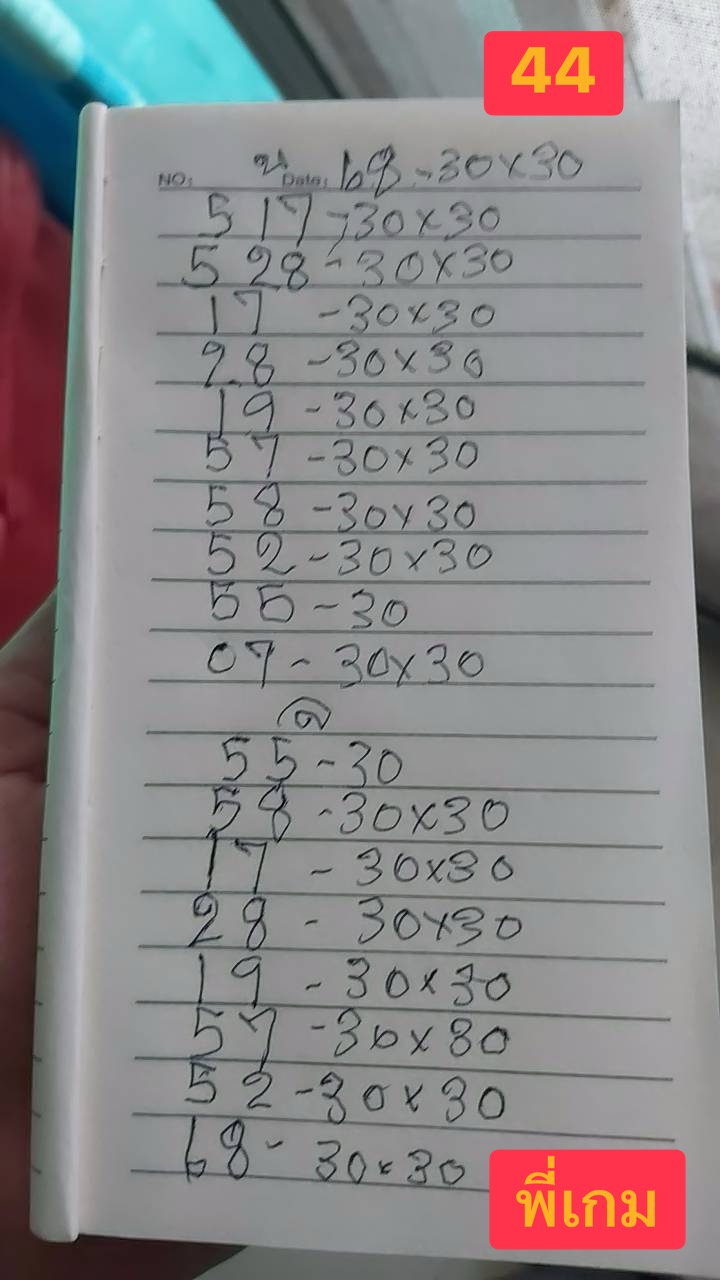 44
NO: บ Date: 68 - 30×30
517 - 30×30
528 - 30×30
17 - 30×30
28 - 30×30
19 - 30×30
57 - 30×30
58 - 30×30
52 - 30×30
55 - 30
07 - 30×30
ล
55 - 30
58 - 30×30
17 - 30×30
28 - 30×30
19 - 30×30
57 - 30×30
52 - 30×30
68 - 30×30
พี่เกม